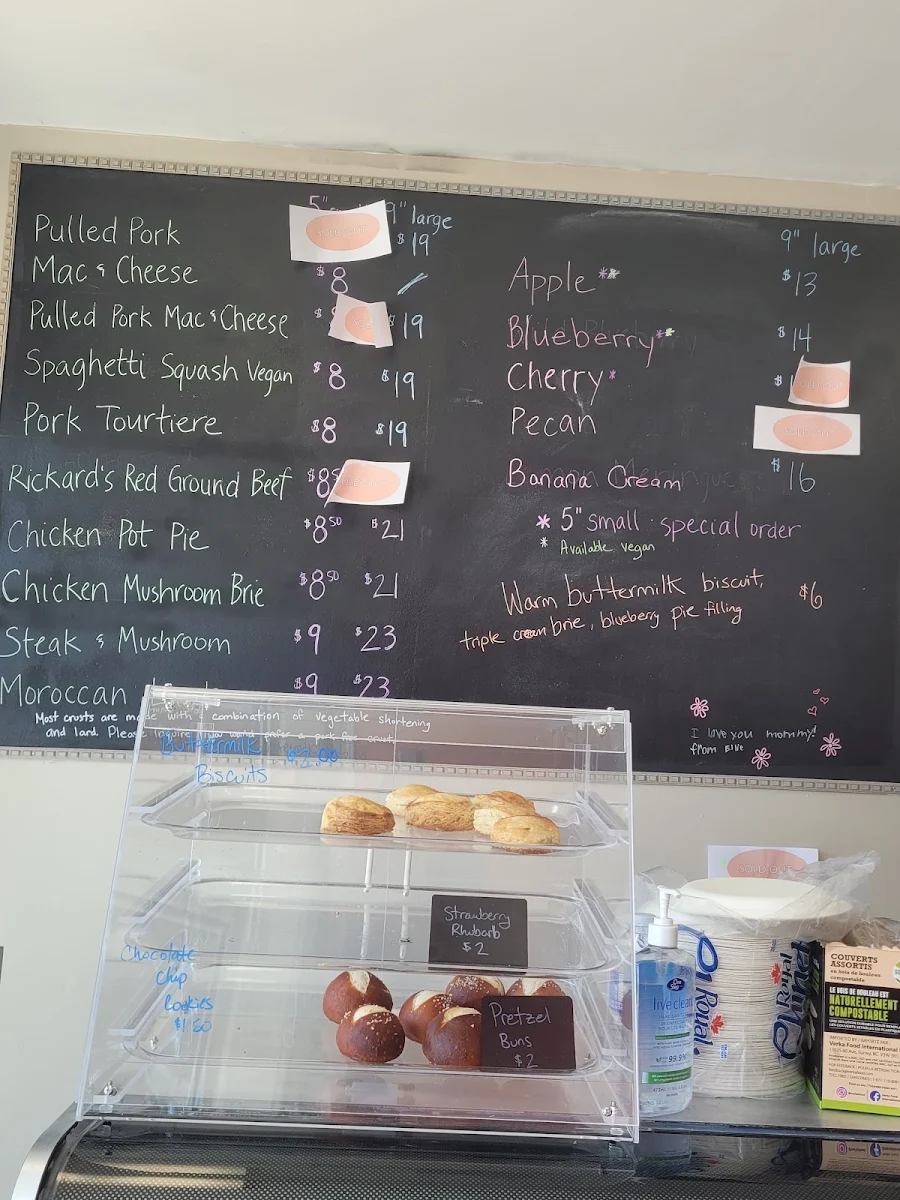 5" 9" large
Pulled Pork $19
Mac & Cheese $8
Pulled Pork Mac & Cheese $ 19
Spaghetti Squash Vegan $8 $19
Pork Tourtiere $8 $19
Rickard's Red Ground Beef $8.5
Chicken Pot Pie $8.50 $21
Chicken Mushroom Brie $8.50 $21
Steak & Mushroom $9 $23
Moroccan $9 $23
Most crusts are made with a combination of vegetable shortening
and lard. Please inquire if you would prefer a pork free crust.
9" large
Apple ** $13
Blueberry ** $14
Cherry * $1
Pecan
Banana Cream $16
* 5" small special order
* Available vegan
Warm buttermilk biscuit, $6
triple cream brie, blueberry pie filling
I love you mommy!
from Ellie
Buttermilk $2.00
Biscuits
Strawberry
Rhubarb
$2
Chocolate
Chip
Cookies
$1.50
Pretzel
Buns
$2
SOLD OUT
live clean
99.9%
Royal Chinet
Royal
COUVERTS
ASSORTIS
en bois de bouleau
compostable
LE BOIS DE BOULEAU EST
NATURELLEMENT
COMPOSTABLE
Verka Food International